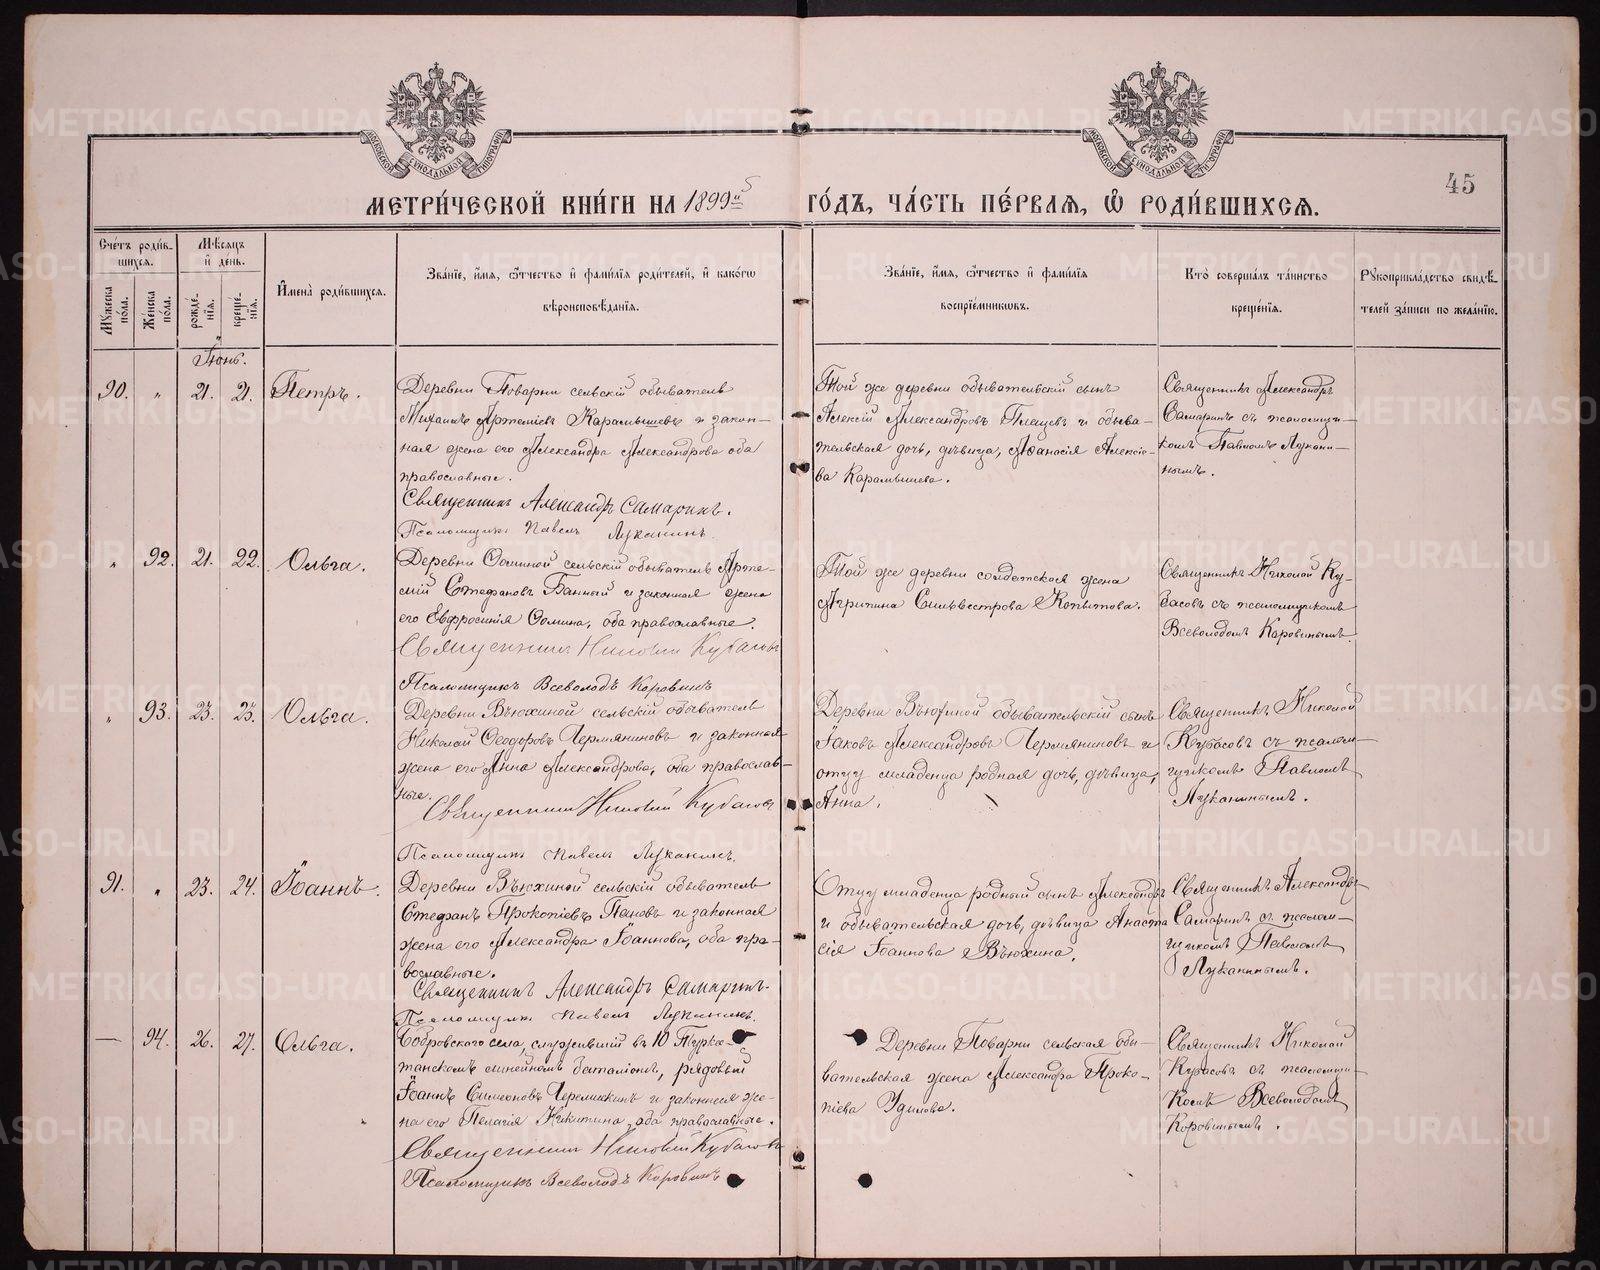 МОСКОВСКОЙ СѴНОДАЛЬНОЙ ТИПОГРАФІИ
МОСКОВСКОЙ СѴНОДАЛЬНОЙ ТИПОГРАФІИ
45
МЕТРИ́ЧЕСКОЙ КНИ́ГИ НА 1899й ГО́ДЪ, ЧА́СТЬ ПЕ́РВАѦ, Ѽ РОДИ́ВШИХСѦ.
Сче́тъ роди́в-
шихсѧ.
Мꙋ́жеска по́ла.
Же́нска по́ла.
Мѣ́сѧцъ
и҆ де́нь.
рожде́-нїѧ.
креще́-нїѧ.
И҆мена̀ роди́вшихсѧ.
Зва́нїе, и҆́мѧ, ѻ҆́тчество и҆ фами́лїѧ роди́телей, и҆ како́гѡ
вѣроисповѣ́данїѧ.
Зва́нїе, и҆́мѧ, ѻ҆́тчество и҆ фами́лїѧ
воспрїе́мникѡвъ.
Кто̀ соверша́лъ та́инство
креще́нїѧ.
Рꙋкоприкла́дство свидѣ́-
телей за́писи по жела́нїю.
Іюнь.
90. „ 21. 21. Петръ.
Деревни Поварни сельскій обыватель
Михаилъ Артеміевъ Карамышевъ и закон-
ная жена его Александра Александрова оба
православные.
Священникъ Александръ Самаринъ.
Псаломщикъ Павелъ Луканинъ.
Той же деревни обывательскій сынъ
Алексій Александровъ Плещевъ и обыва-
тельская дочь, дѣвица, Аѳанасія Алексіе-
ва Карамышева.
Священникъ Александръ
Самаринъ съ псаломщи-
комъ Павломъ Лукани-
нымъ.
„ 92. 21. 22. Ольга.
Деревни Ѳоминой сельскій обыватель Арте-
мій Стефановъ Банный и законная жена
его Евфросинія Ѳомина, оба православные.
Священникъ Николай Кубасовъ
Псаломщикъ Всеволодъ Коровинъ
Той же деревни солдатская жена
Агрипина Сильвестрова Копытова.
Священникъ Николай Ку-
басовъ съ псаломщикомъ
Всеволодомъ Коровинымъ.
„ 93. 23. 23. Ольга.
Деревни Вьюхиной сельскій обыватель
Николай Ѳеодоровъ Чермяниновъ и законная
жена его Анна Александрова, оба православ-
ные.
Священникъ Николай Кубасовъ
Псаломщикъ Павелъ Луканинъ.
Деревни Вьюхиной обывательскій сынъ
Іаковъ Александровъ Чермяниновъ и
отцу младенца родная дочь, дѣвица,
Анна.
Священникъ Николай
Кубасовъ съ псалом-
щикомъ Павломъ
Луканинымъ.
91. „ 23. 24. Іоаннъ.
Деревни Вьюхиной сельскій обыватель
Стефанъ Прокопіевъ Пановъ и законная
жена его Александра Іоаннова, оба пра-
вославные.
Священникъ Александръ Самаринъ.
Псаломщикъ Павелъ Луканинъ.
Отцу младенца родный сынъ Александръ
и обывательская дочь, дѣвица Анаста
сія Іоаннова Вьюхина.
Священникъ Александръ
Самаринъ съ псалом-
щикомъ Павломъ
Луканинымъ.
— 94. 26. 27. Ольга.
Бобровскаго села, служившій въ 10 Турке-
танскомъ линейномъ баталіонѣ, рядовый
Іоаннъ Симеоновъ Черемискинъ и законная же-
на его Пелагія Никитина, оба православные.
Священникъ Николай Кубасовъ
Псаломщикъ Всеволодъ Коровинъ
Деревни Поварни сельская обы-
вательская жена Александра Проко-
піева Удилова.
Священникъ Николай
Кубасовъ съ псаломщи-
комъ Всеволодомъ
Коровинымъ.
METRIKI.GASO-URAL.RU